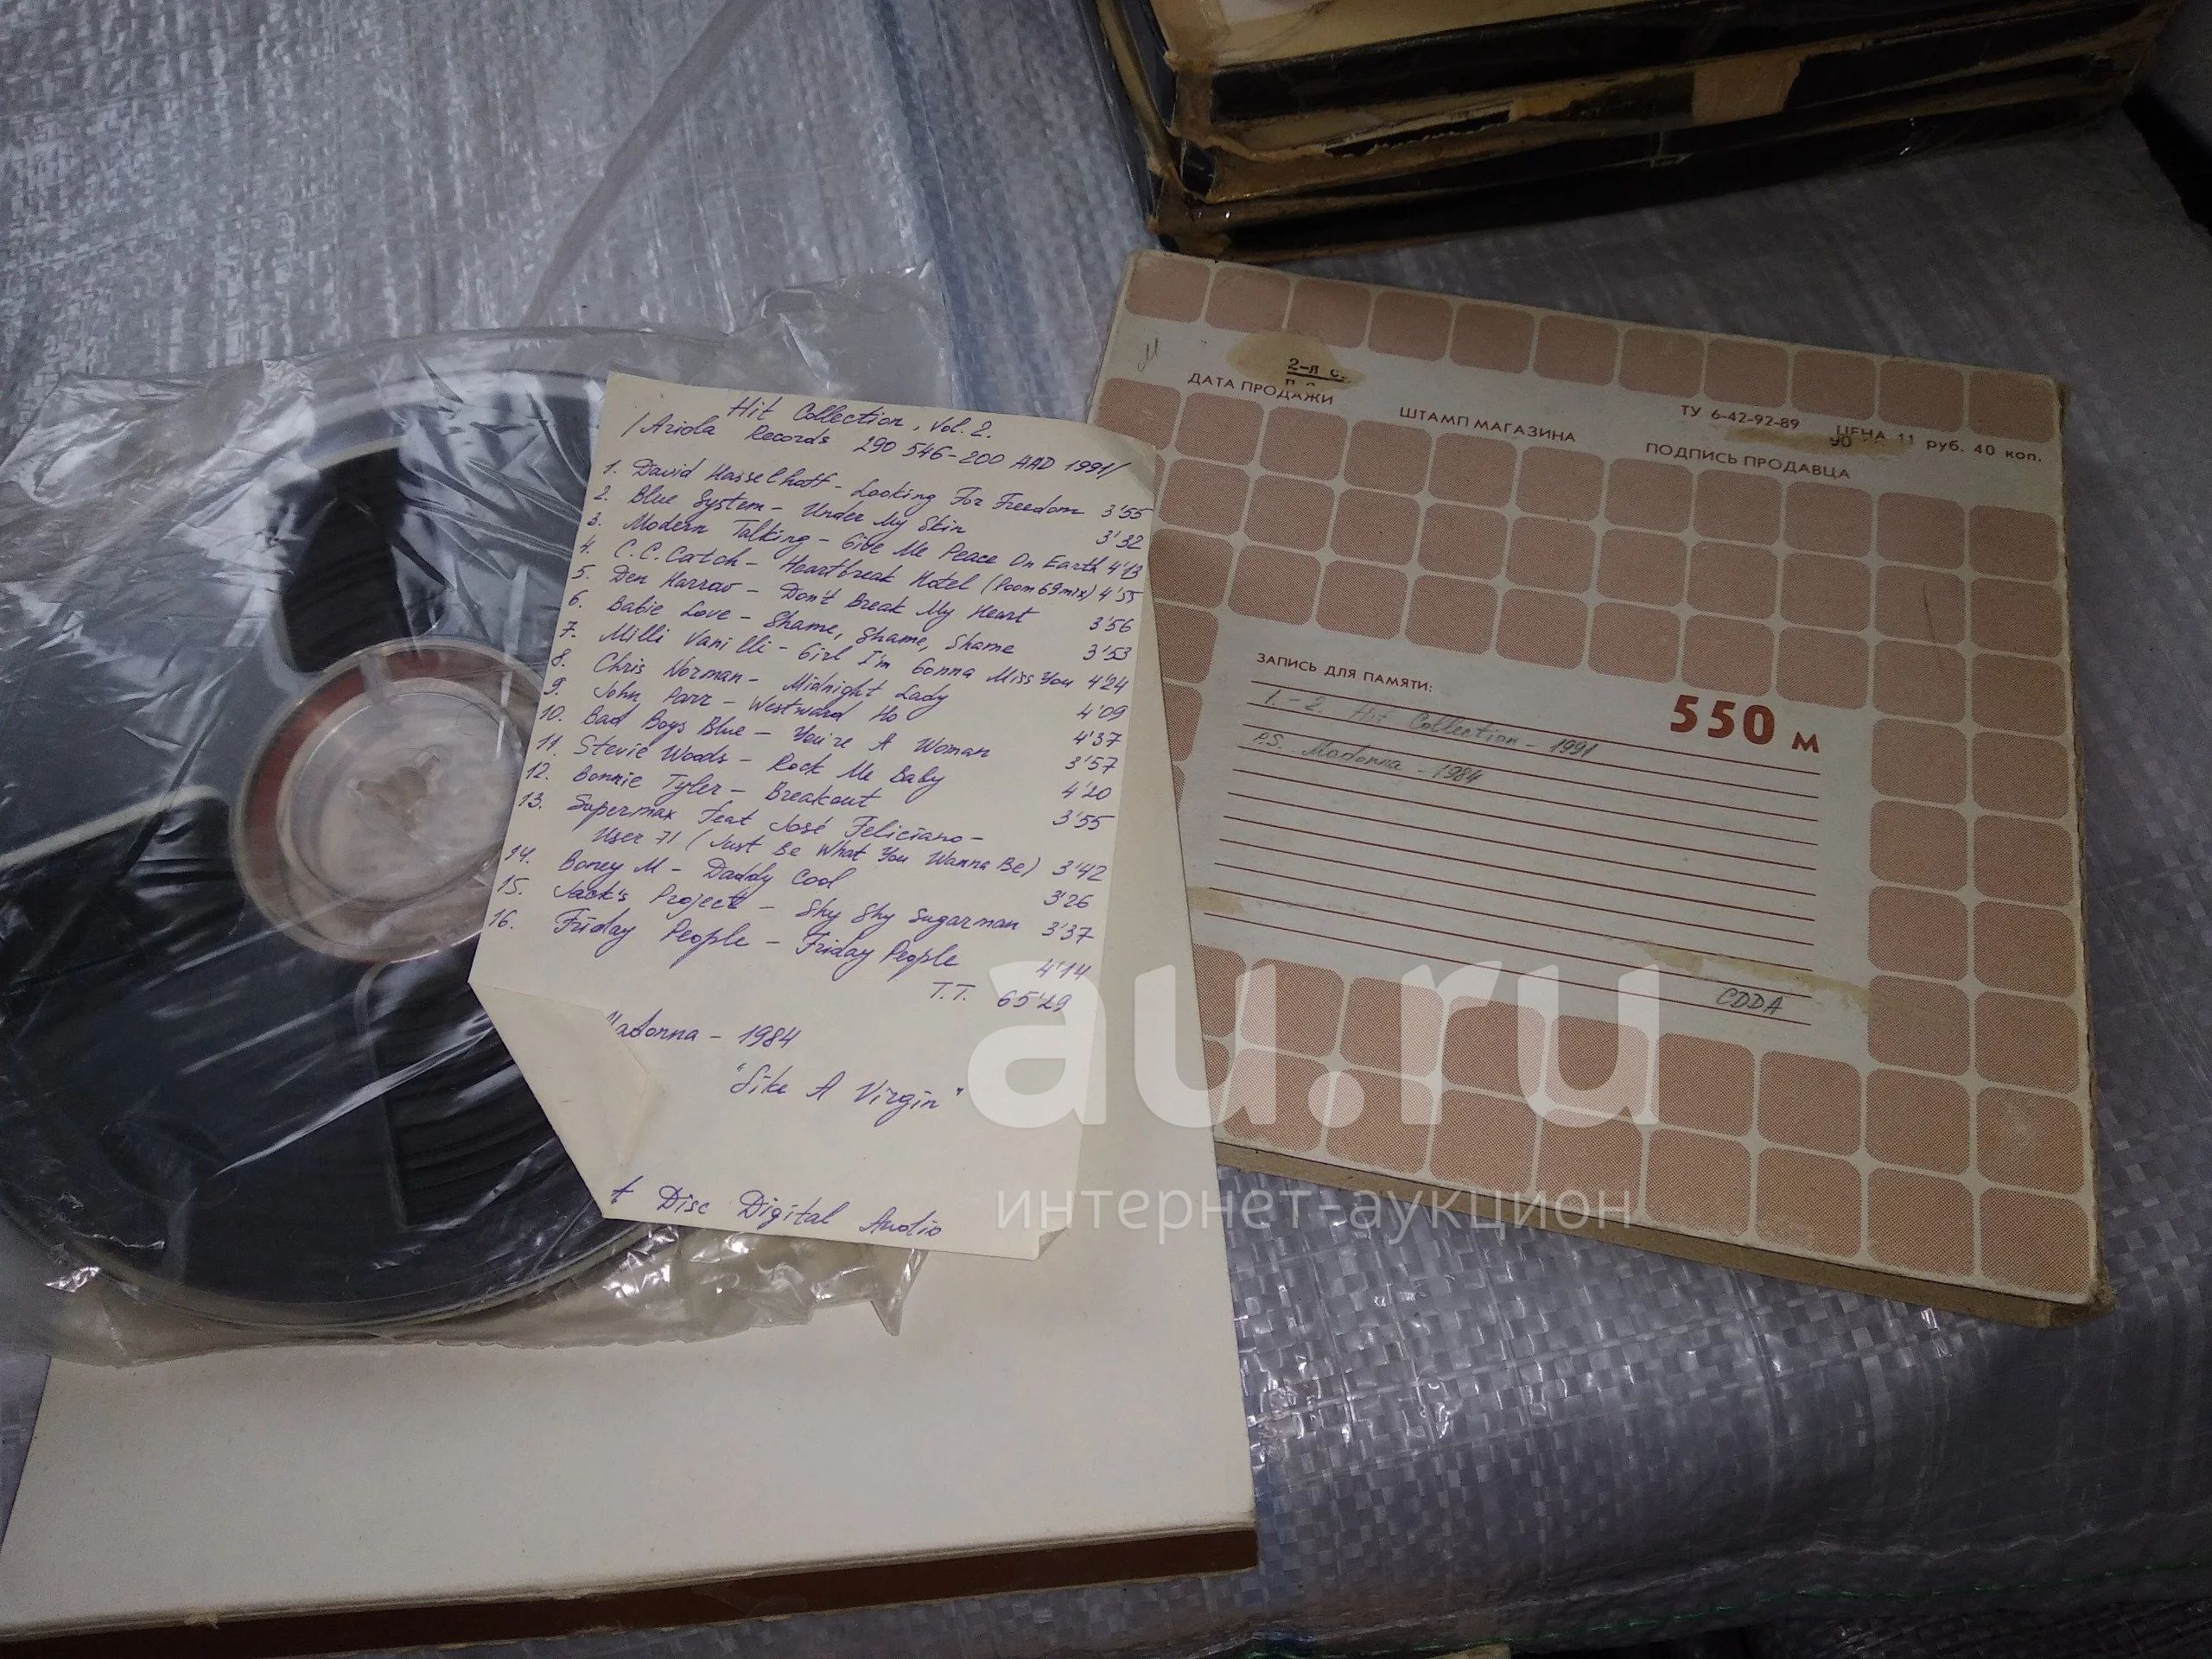 Hit Collection, Vol. 2.
/Ariola Records 290 546-200 AAD 1991/
1. David Hasselhoff - Looking For Freedom 3'55
2. Blue System - Under My Skin 3'32
3. Modern Talking - Give Me Peace On Earth 4'13
4. C.C.Catch - Heartbreak Hotel (Room 69 mix) 4'55
5. Den Harrow - Don't Break My Heart 3'56
6. Babie Love - Shame, Shame, Shame 3'53
7. Milli Vanilli - Girl I'm Gonna Miss You 4'24
8. Chris Norman - Midnight Lady 4'09
9. John Parr - Westward Ho 4'37
10. Bad Boys Blue - You're A Woman 3'57
11. Stevie Woods - Rock Me Baby 4'20
12. Bonnie Tyler - Breakout 3'55
13. Supermax Feat José Feliciano -
User 71 (Just Be What You Wanna Be) 3'42
14. Boney M - Daddy Cool 3'26
15. Jack's Project - Shy Shy Sugarman 3'37
16. Friday People - Friday People 4'14
T.T. 65'29
Madonna - 1984
"Like A Virgin"
t Disc Digital Audio
2-я с.
ДАТА ПРОДАЖИ
ШТАМП МАГАЗИНА
ТУ 6-42-92-89
ЦЕНА 11 руб. 40 коп.
90
ПОДПИСЬ ПРОДАВЦА
ЗАПИСЬ ДЛЯ ПАМЯТИ:
550 м
1.-2. Hit Collection - 1991
P.S. Madonna - 1984
CDDA
au.ru
интернет-аукцион